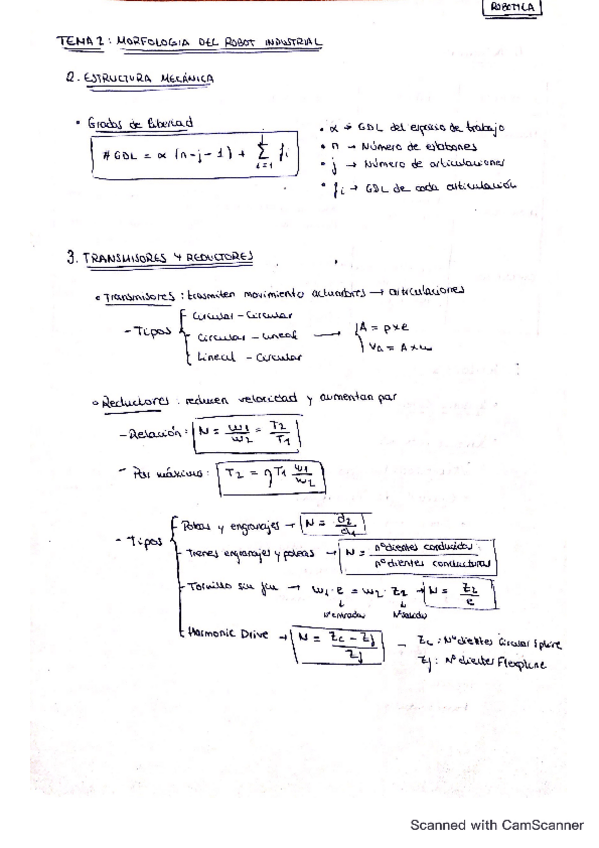 ROBOTICA
TEMA 2: MORFOLOGIA DEL ROBOT INDUSTRIAL
2. ESTRUCTURA MECÁNICA
• Grados de libertad
# GDL = α (n-j-1) + Σ fi
j
i=1
• α → GDL del espacio de trabajo
• n → Número de eslabones
• j → Número de articulaciones
• fi → GDL de cada articulación
3. TRANSMISORES Y REDUCTORES
• Transmisores: trasmiten movimiento actuadores → articulaciones
- Tipos
Circular - Circular
Circular - Lineal → A = p x e
Lineal - Circular
VA = A x w
• Reductores: reducen velocidad y aumentan par
- Relación: N = w1/w2 = T2/T1
- Par máximo: T2 = η T1 w1/w2
- Tipos
Poleas y engranajes → N = d2/d1
Trenes engranajes y poleas → N = nº dientes conducidas / nº dientes conductoras
Tornillo sin fin → w1 · e = w2 · Z2 → N = Z2/e
Nº entradas Nº salidas
Harmonic Drive → N = Zc - Zf / Zf
- Zc: Nº dientes Circular Spline
Zf: Nº dientes Flexspline
Scanned with CamScanner